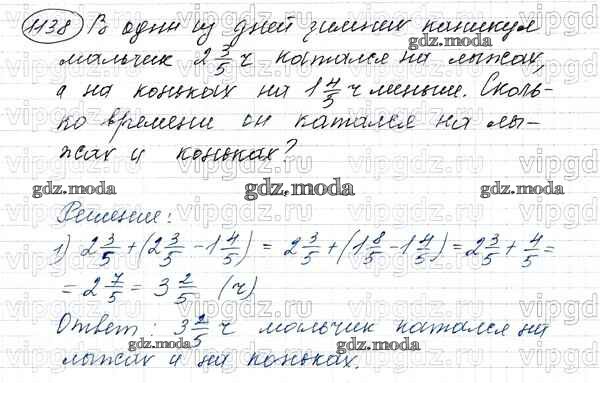 1138) В один из дней зимних каникул
мальчик 2 3/5 ч катался на лыжах,
а на коньках на 1 4/5 ч меньше. Сколь-
ко времени он катался на лы-
жах и коньках?
Решение:
1) 2 3/5 + (2 3/5 - 1 4/5) = 2 3/5 + (1 8/5 - 1 4/5) = 2 3/5 + 4/5 =
= 2 7/5 = 3 2/5 (ч)
Ответ: 3 2/5 ч мальчик катался на
лыжах и на коньках.
gdz.moda
vipgdz.ru